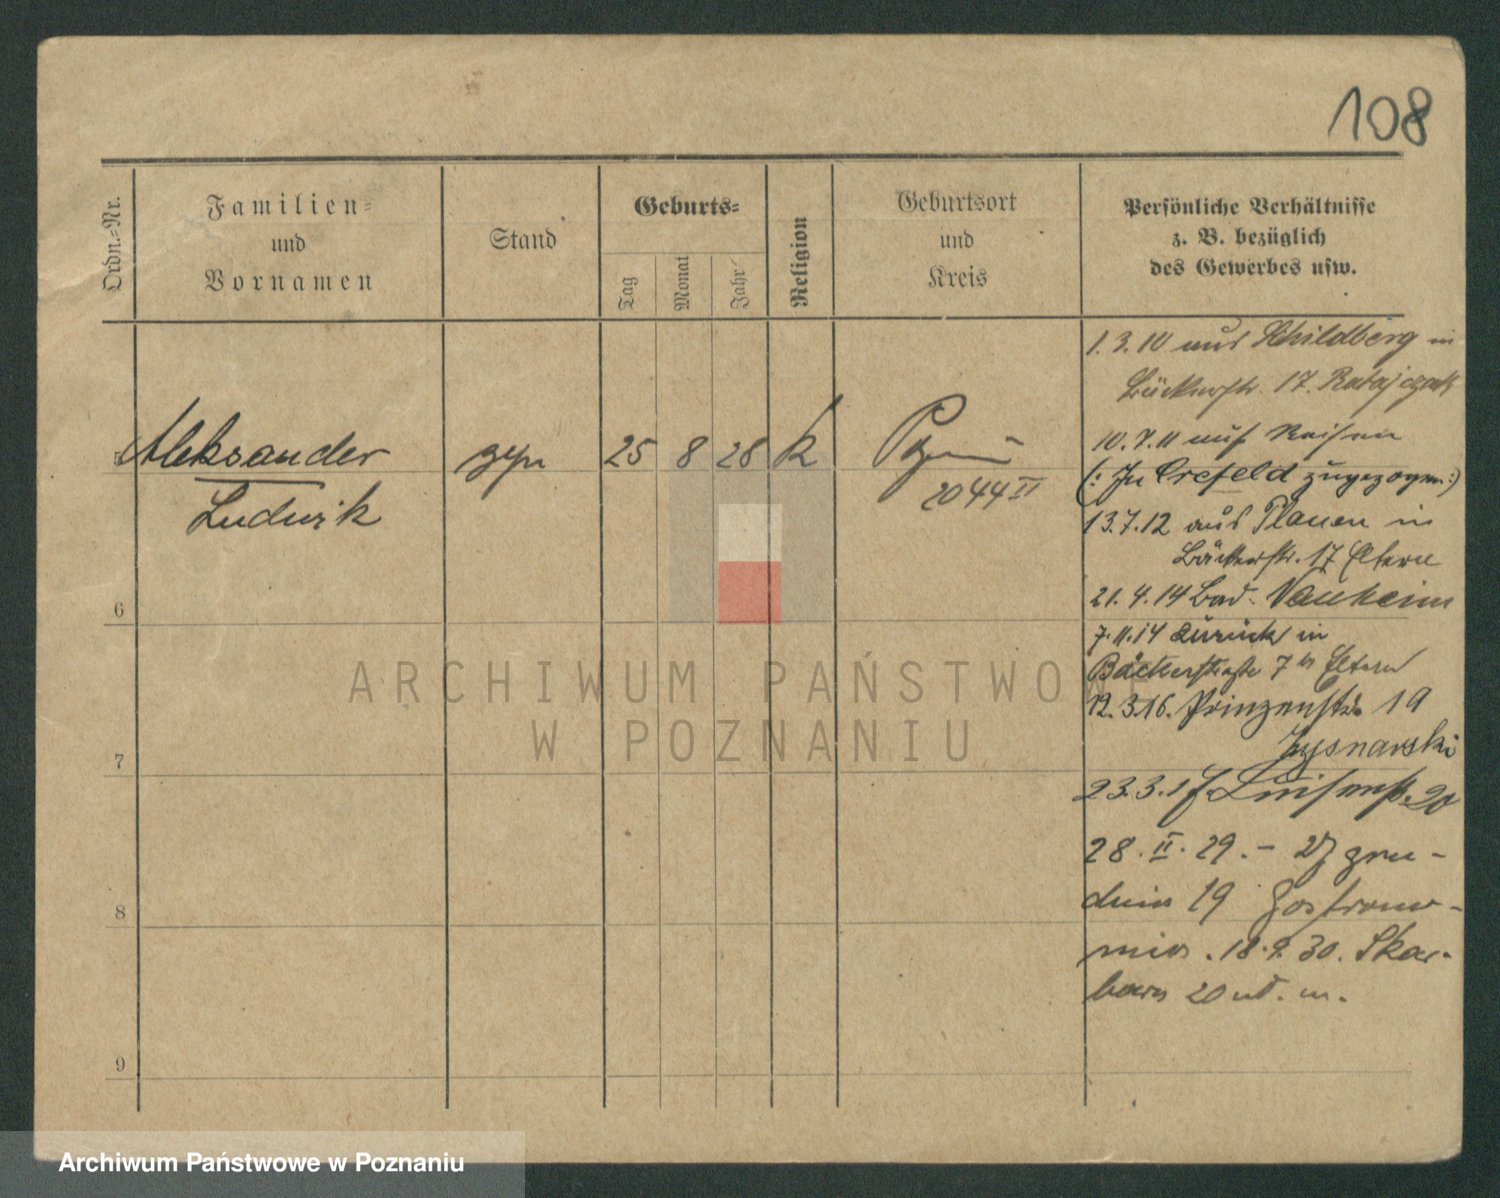 108
Ordn.-Nr.
Familien-
und
Vornamen
Stand
Geburts-
Tag
Monat
Jahr
Religion
Geburtsort
und
Kreis
Persönliche Verhältnisse
z. B. bezüglich
des Gewerbes usw.
5
Aleksander
Ludwik
25 8 28 k
2044 II
1.3.10 aus Schildberg in
Bäckerstr. 17. Ratajczak
10.7.11 auf Reisen
(: In Crefeld zugezogen :)
13.7.12 aus Plauen in
Bäckerstr. 17 Eltern
21.4.14 Bad-Nauheim
7.11.14 zurück in
Bäckerstraße 7 Eltern
12.3.16. Prinzenstr. 19
23.3.17. Luisenstr. 20
28. II. 29. – 27 gru-
dnia 19
18.9.30. Skar-
bowa 20 m.
6
7
8
9
ARCHIWUM PAŃSTWO
W POZNANIU
Archiwum Państwowe w Poznaniu